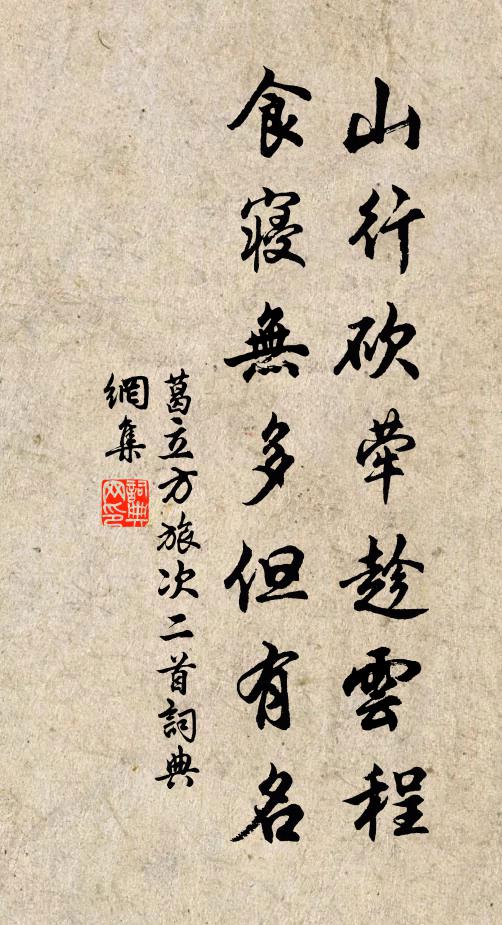 山行砍荜趁雲程
食寝無多但有名
葛立方旅次二首詞典
網集
詞典
网印